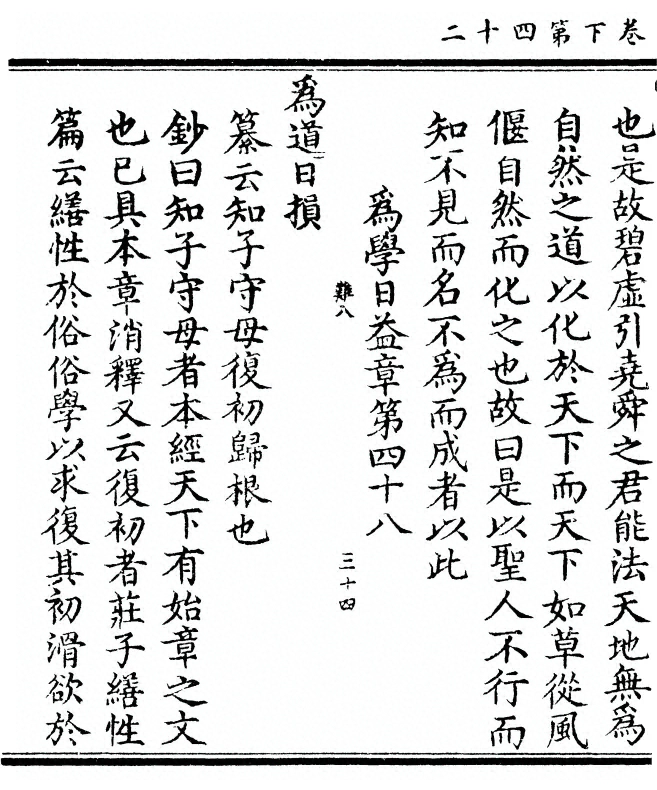 卷下第四十二
也是故碧虛引堯舜之君能法天地無爲
自然之道以化於天下而天下如草從風
偃自然而化之也故曰是以聖人不行而
知不見而名不爲而成者以此
爲學日益章第四十八
難八
三十四
爲道日損
纂云知子守母復初歸根也
鈔曰知子守母者本經天下有始章之文
也已具本章消釋又云復初者莊子繕性
篇云繕性於俗俗學以求復其初滑欲於